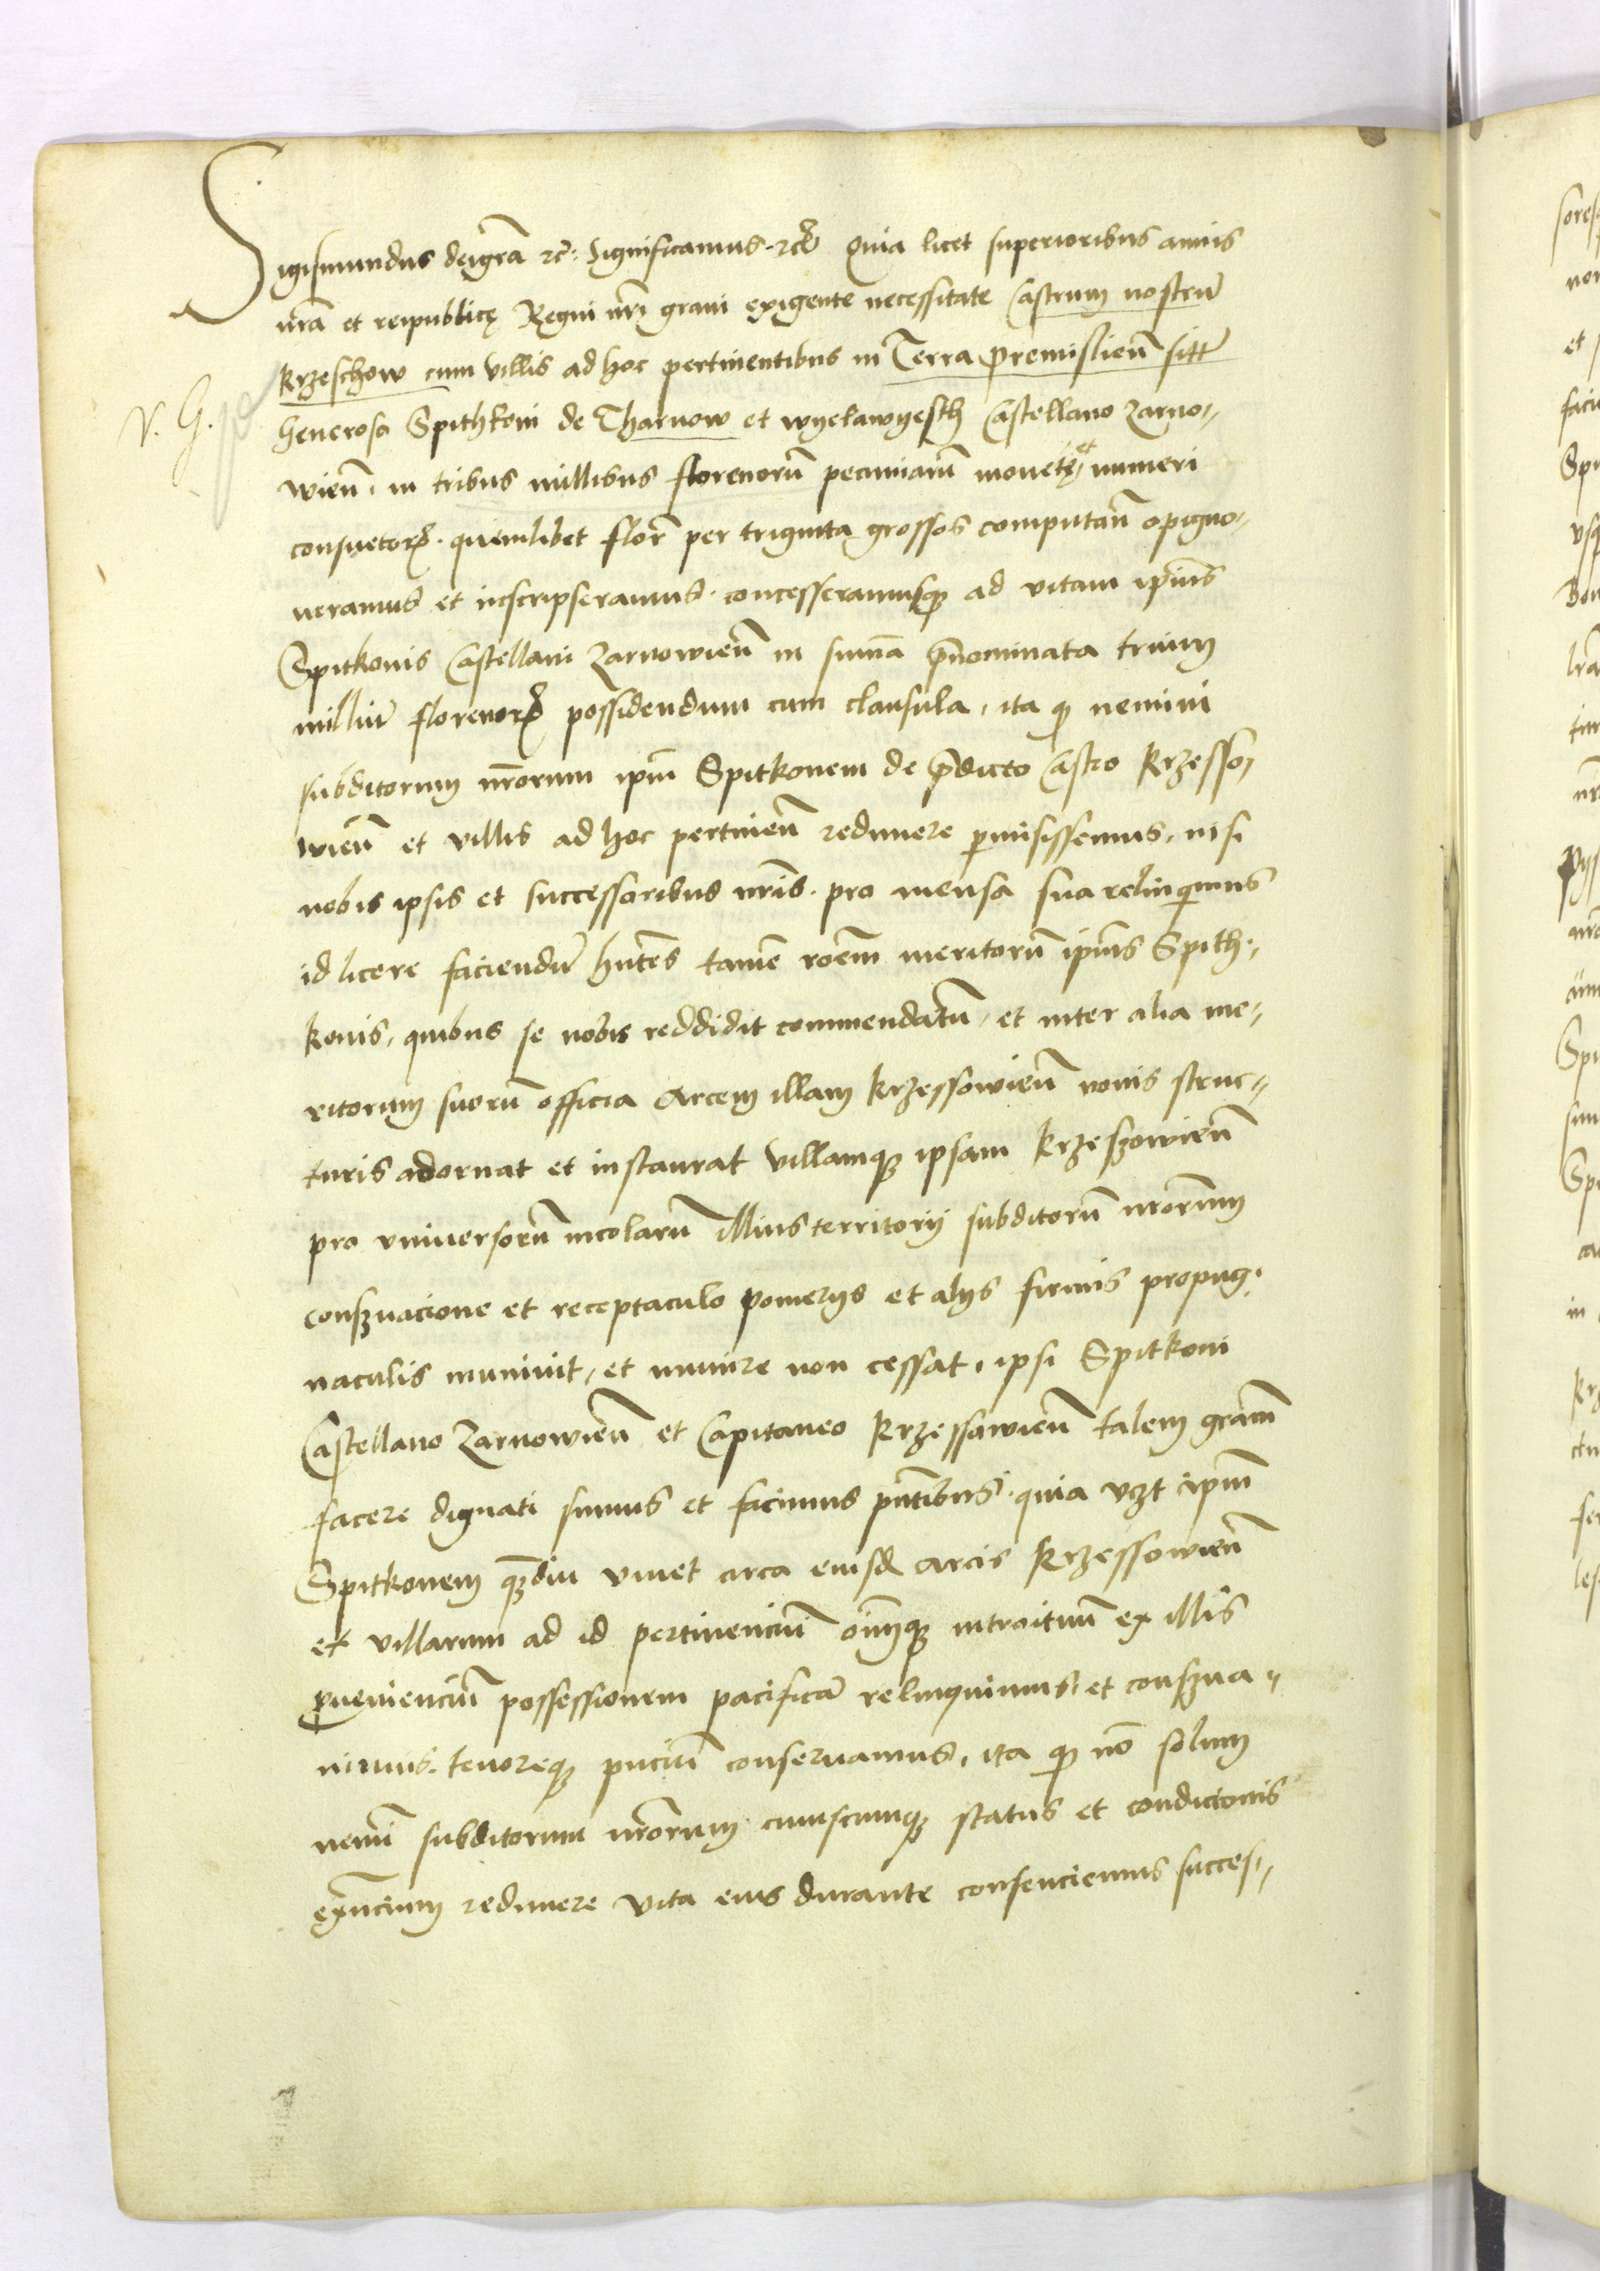 Sigismundus dei gr̃a ꝛc̃: Significamus ꝛc̃ Quia licet superioribus annis
nr̃a et reipublicę Regni nr̃i gravi exigente necessitate Castrum nostrũ
Krzeschow cum villis ad hoc pertinentibus in Terra premislien̄ sitt̃
V. G.
Generoso Spithkoni de Tharnow et wyelawyesth Castellano Zarno-
wien̄. in tribus millibus florenorũ pecuniarũ monetę et numeri
consuetorꝫ. quemlibet flor̃ per triginta grossos computan̄ opigno-
neramus et inscripseramus. concesseramusqꝫ ad vitam ip̄ius
Spitkonis Castellani Zarnowien̄ in sum̄a p̄nominata trium
milliũ florenorꝫ possidendum cum clausula, ita qꝫ nemini
subditorum nr̃orum ip̄m Spitkonem de p̄dicto Castro Krzesso-
wien̄ et villis ad hoc pertinen̄ redimere p̱misissemus, nisi
nobis ipsis et successoribus nr̃is. pro mensa sua relinquimus
id licere faciendũ hñtes tamẽ rõem meritorũ ip̄ius Spith-
konis, quibus se nobis reddidit commendatũ, et inter alia me-
ritorum suorũ officia Arcem illam Krzessowien̄ novis struc-
turis adornat et instaurat villamqꝫ ipsam Krzeszowien̄
pro universorũ incolarũ illius territorij subditorũ nr̃orum
conſꝫuacione et receptaculo pomerijs et alijs firmis propug-
naculis munivit, et munire non cessat, ipsi Spitkoni
Castellano Zarnowien̄ et Capitaneo Krzessowien̄ talem gr̃am
facere dignati sumus et facimus pñtibus. quia vꝫt ip̄m
Spitkonem qꝫdiu vivet circa eiusd̃ arcis Krzessowien̄
et villarum ad id pertinenciũ oĩmqꝫ introituũ ex illis
ꝓvenienciũ possessionem pacificã relinquimus, et conſꝫua-
bimus. tenoreqꝫ pñciũ conservamus, ita qꝫ nõ solum
nemĩ subditorum nr̃orum cuiuscumqꝫ status et condictonis
exñcium redimere vita eius durante consenciemus succes-